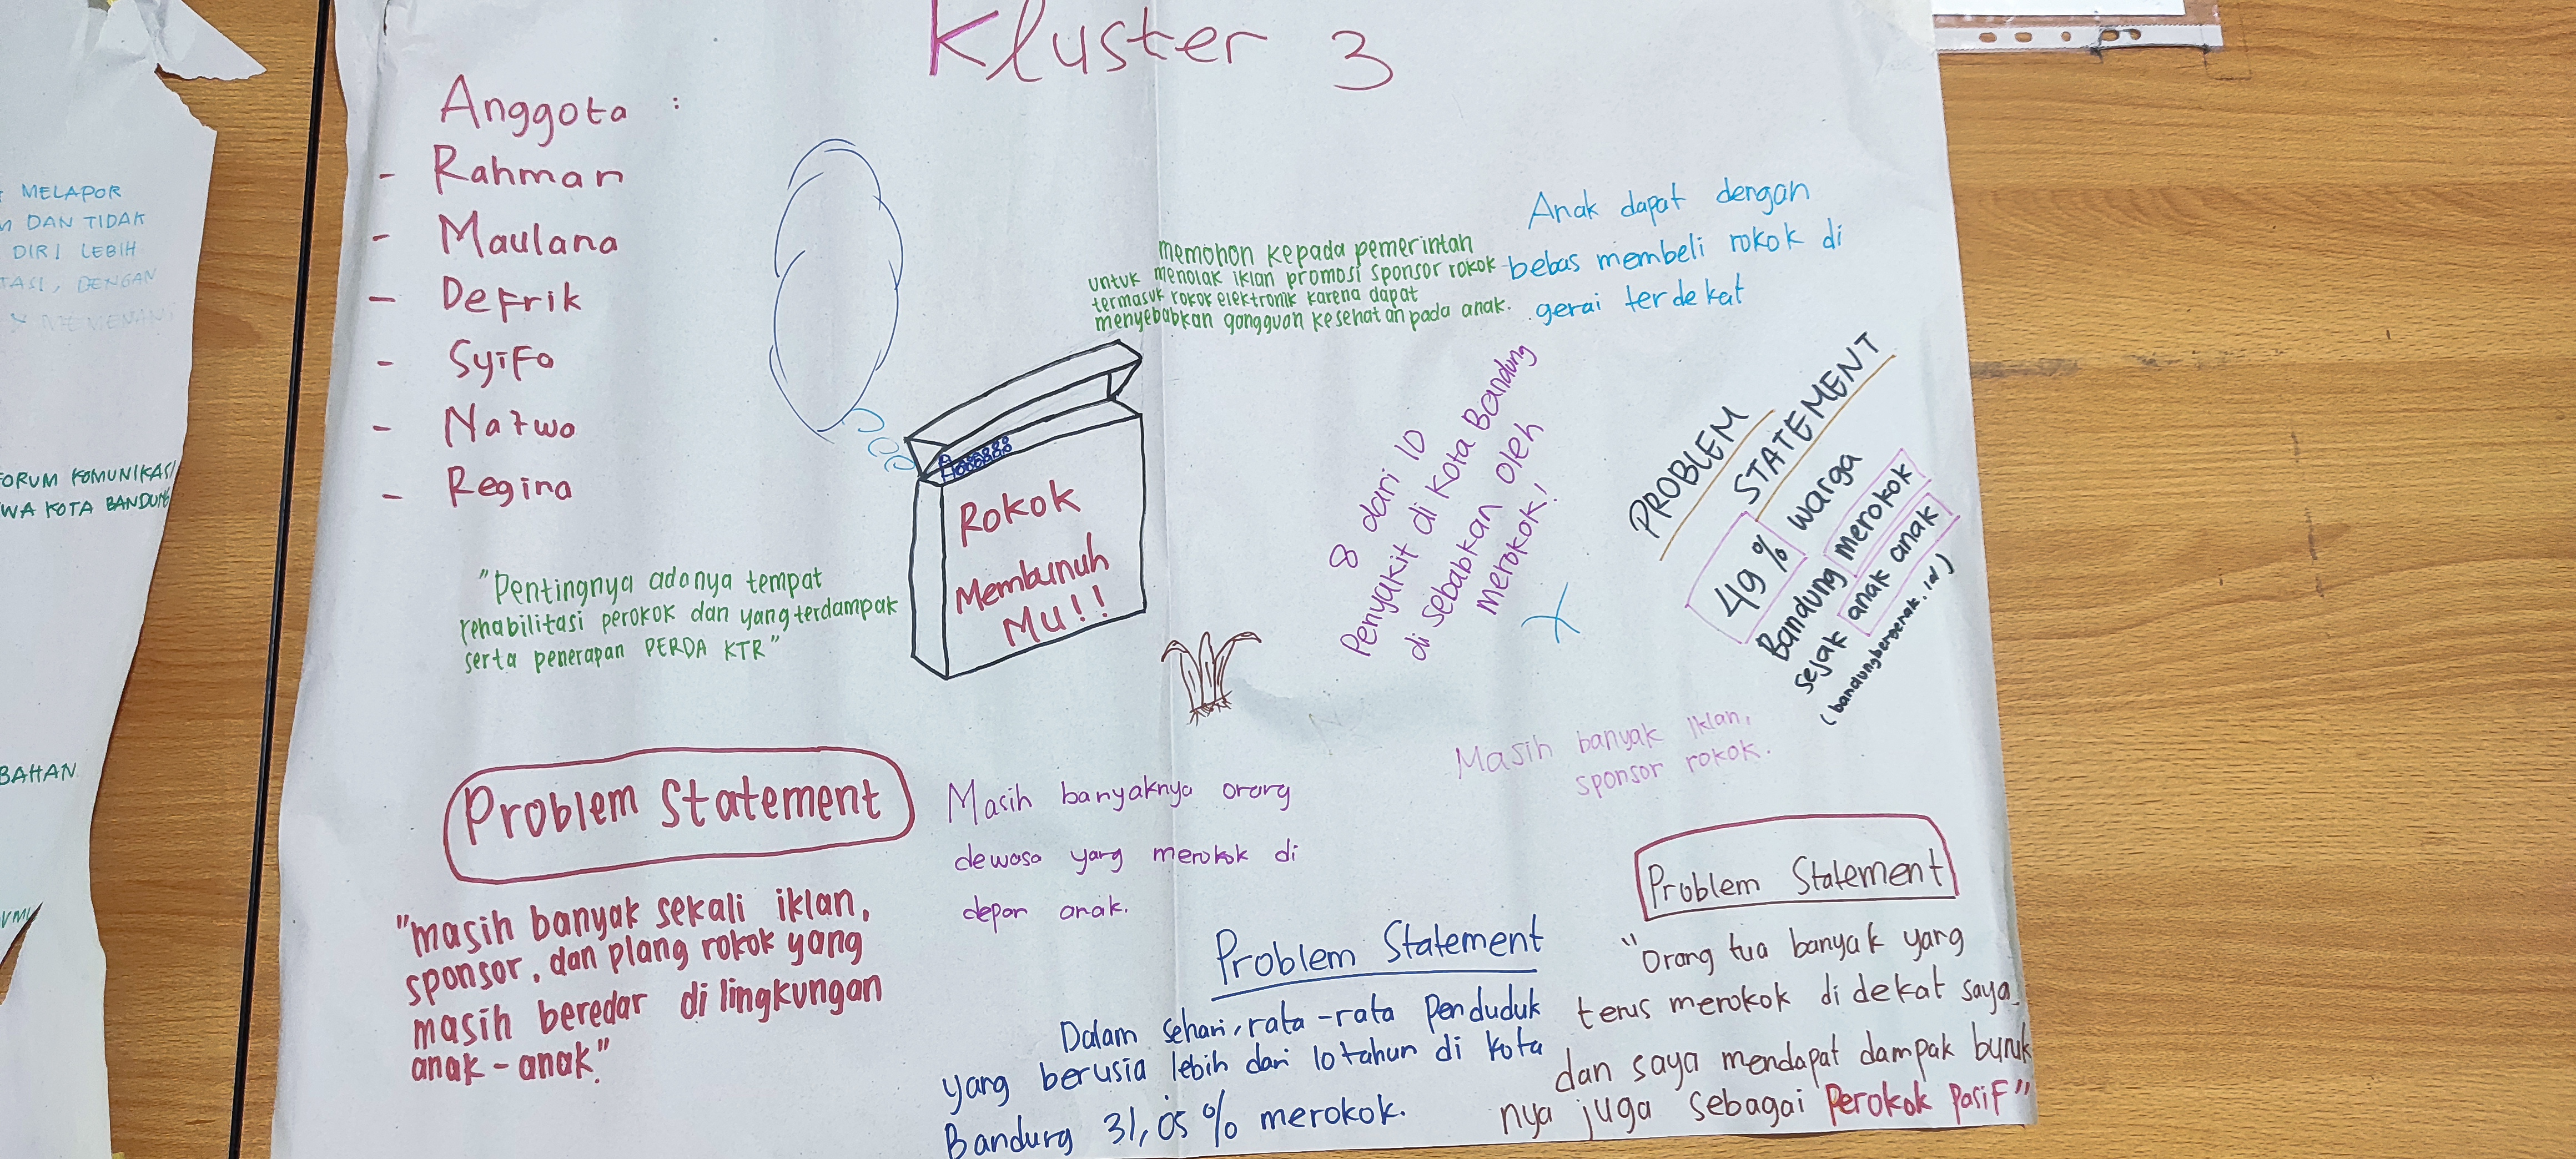 Kluster 3
Anggota :
- Rahman
- Maulana
- Defrik
- Syifa
- Nazwa
- Regina
"Pentingnya adanya tempat
rehabilitasi perokok dan yang terdampak
serta penerapan PERDA KTR"
Rokok
Membunuh
Mu!!
memohon kepada pemerintah
untuk menolak iklan promosi sponsor rokok
termasuk rokok elektronik karena dapat
menyebabkan gangguan kesehatan pada anak.
Anak dapat dengan
bebas membeli rokok di
gerai terdekat
8 dari 10
Penyakit di Kota Bandung
di sebabkan oleh
merokok!
PROBLEM
STATEMENT
49% warga
Bandung merokok
sejak anak anak
Masih banyak iklan,
sponsor rokok.
Problem Statement
"masih banyak sekali iklan,
sponsor, dan plang rokok yang
masih beredar di lingkungan
anak-anak."
Masih banyaknya orang
dewasa yang merokok di
depan anak.
Problem Statement
Dalam sehari, rata-rata Penduduk
yang berusia lebih dari 10 tahun di kota
Bandung 31,05% merokok.
Problem Statement
"Orang tua banyak yang
terus merokok di dekat saya
dan saya mendapat dampak buruk
nya juga sebagai Perokok Pasif"
MELAPOR
DAN TIDAK
DIRI LEBIH
TASI, DENGAN
FORUM KOMUNIKASI
WA KOTA BANDUNG
BAHAN